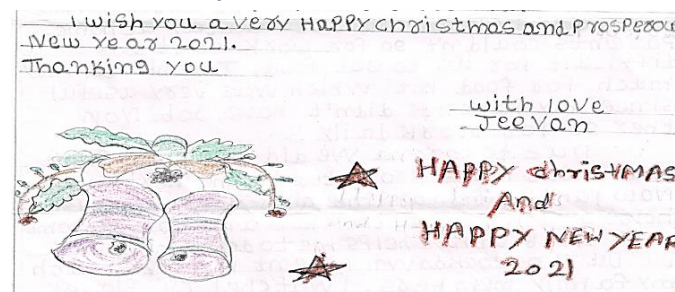 I wish you a very Happy christmas and Prosperou
New year 2021.
Thanking you
with love
Jeevan
HAPPY christMAS
And
HAPPY NEW YEAR
2021